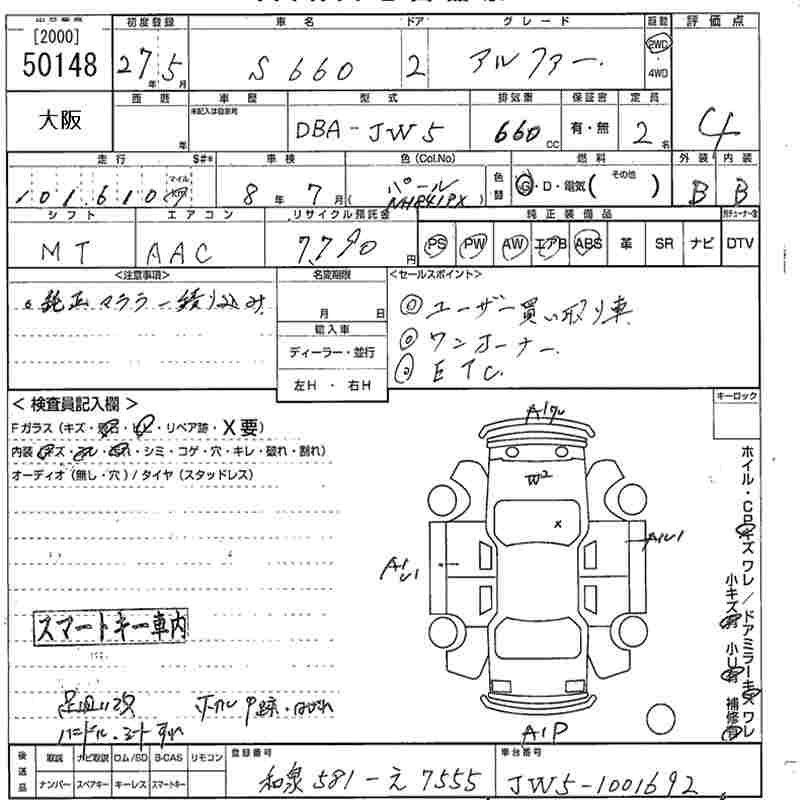 [2000]
50148
大阪
初度登録
27年 5月
車名
S660
ドア
2
グレード
アルファー
駆動
2WD
4WD
評価点
4
車歴
未記入は自家用
年
型式
DBA-JW5
排気量
660cc
保証書
有・無
定員
2名
走行 S#*
101,610
マイル
km
車検
8年 7月
色(Col.No)
パール
NH841PX
色替
燃料
G・D・電気( その他 )
外装
B
内装
B
シフト
MT
エアコン
AAC
リサイクル預託金
7790円
純正装備品
PS PW AW エアB ABS 革 SR ナビ DTV
<注意事項>
純正マフラー
名変期限
月 日
輸入車
ディーラー・並行
左H・右H
<セールスポイント>
◎ユーザー買い取り車
◎ワンオーナー
◎ETC
<検査員記入欄>
Fガラス(キズ・リペア跡・X要)
内装(キズ・シミ・コゲ・穴・キレ・破れ・割れ)
オーディオ(無し・穴)/タイヤ(スタッドレス)
スマートキー車内
ハンドル・シートすれ
キーロック
A1
W2
x
A1
A1
A1P
ホイル・CP キズ ワレ/ドアミラー キズ ワレ
小キズ 小U 補修
後送品
取説 ナビ取説 ロム/SD B-CAS リモコン
ナンバー スペアキー キーレス スマートキー
登録番号
和泉 581-え 7555
車台番号
JW5-1001692